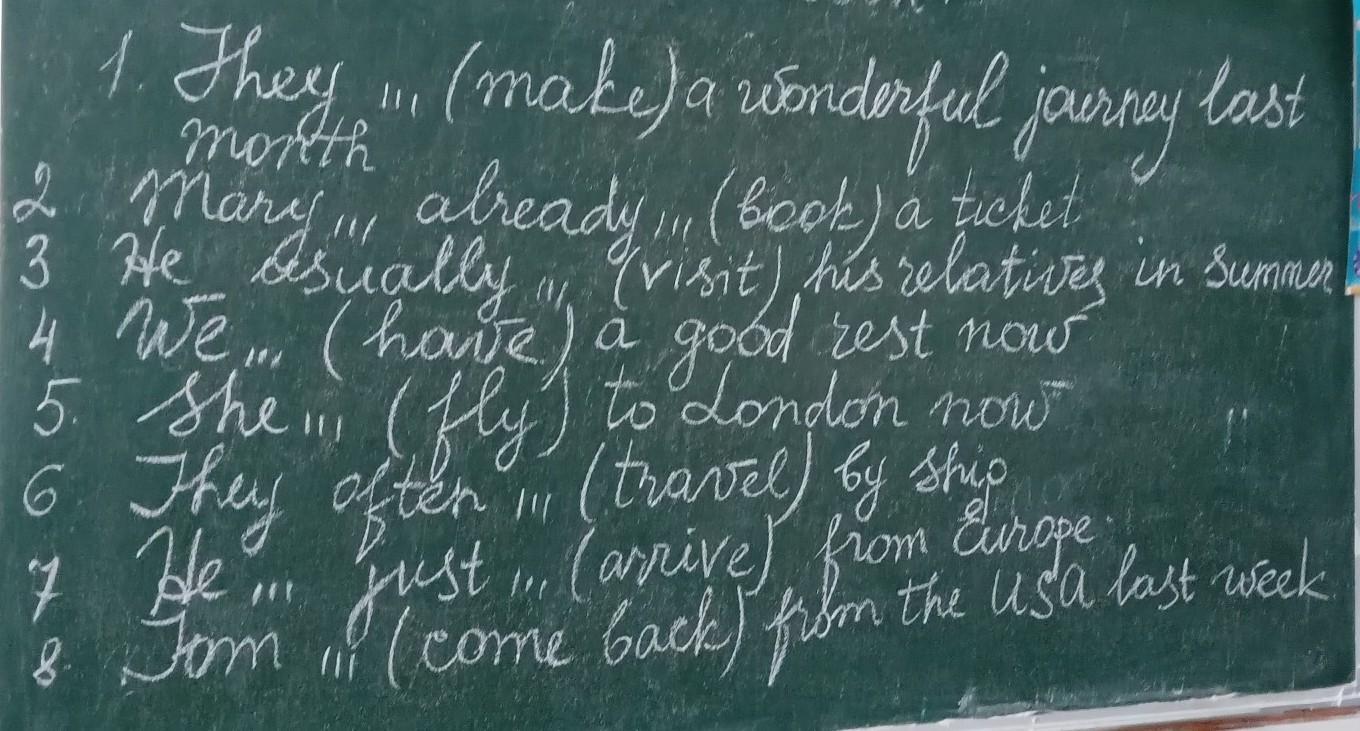 1. They ... (make) a wonderful journey last
month
2 Mary ... already ... (book) a ticket
3 He usually ... (visit) his relatives in summer
4 We ... (have) a good rest now
5. She ... (fly) to London now
6 They often ... (travel) by ship
7 He ... just ... (arrive) from Europe.
8. Tom ... (come back) from the USA last week